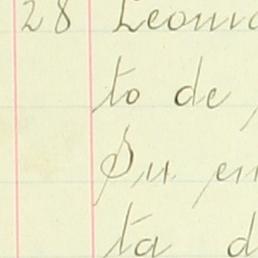 28 Leonid
to de
Su en
ta d